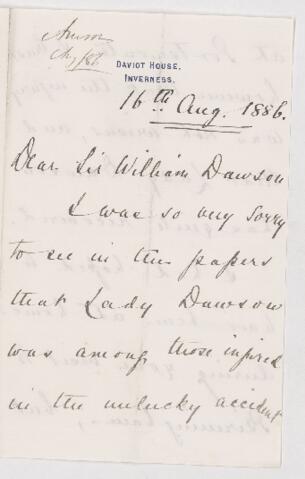 DAVIOT HOUSE,
INVERNESS.
16th Aug. 1886.
Dear Sir William Dawson
I was so very sorry
to see in the papers
that Lady Dawson
was among those injured
in the unlucky accident